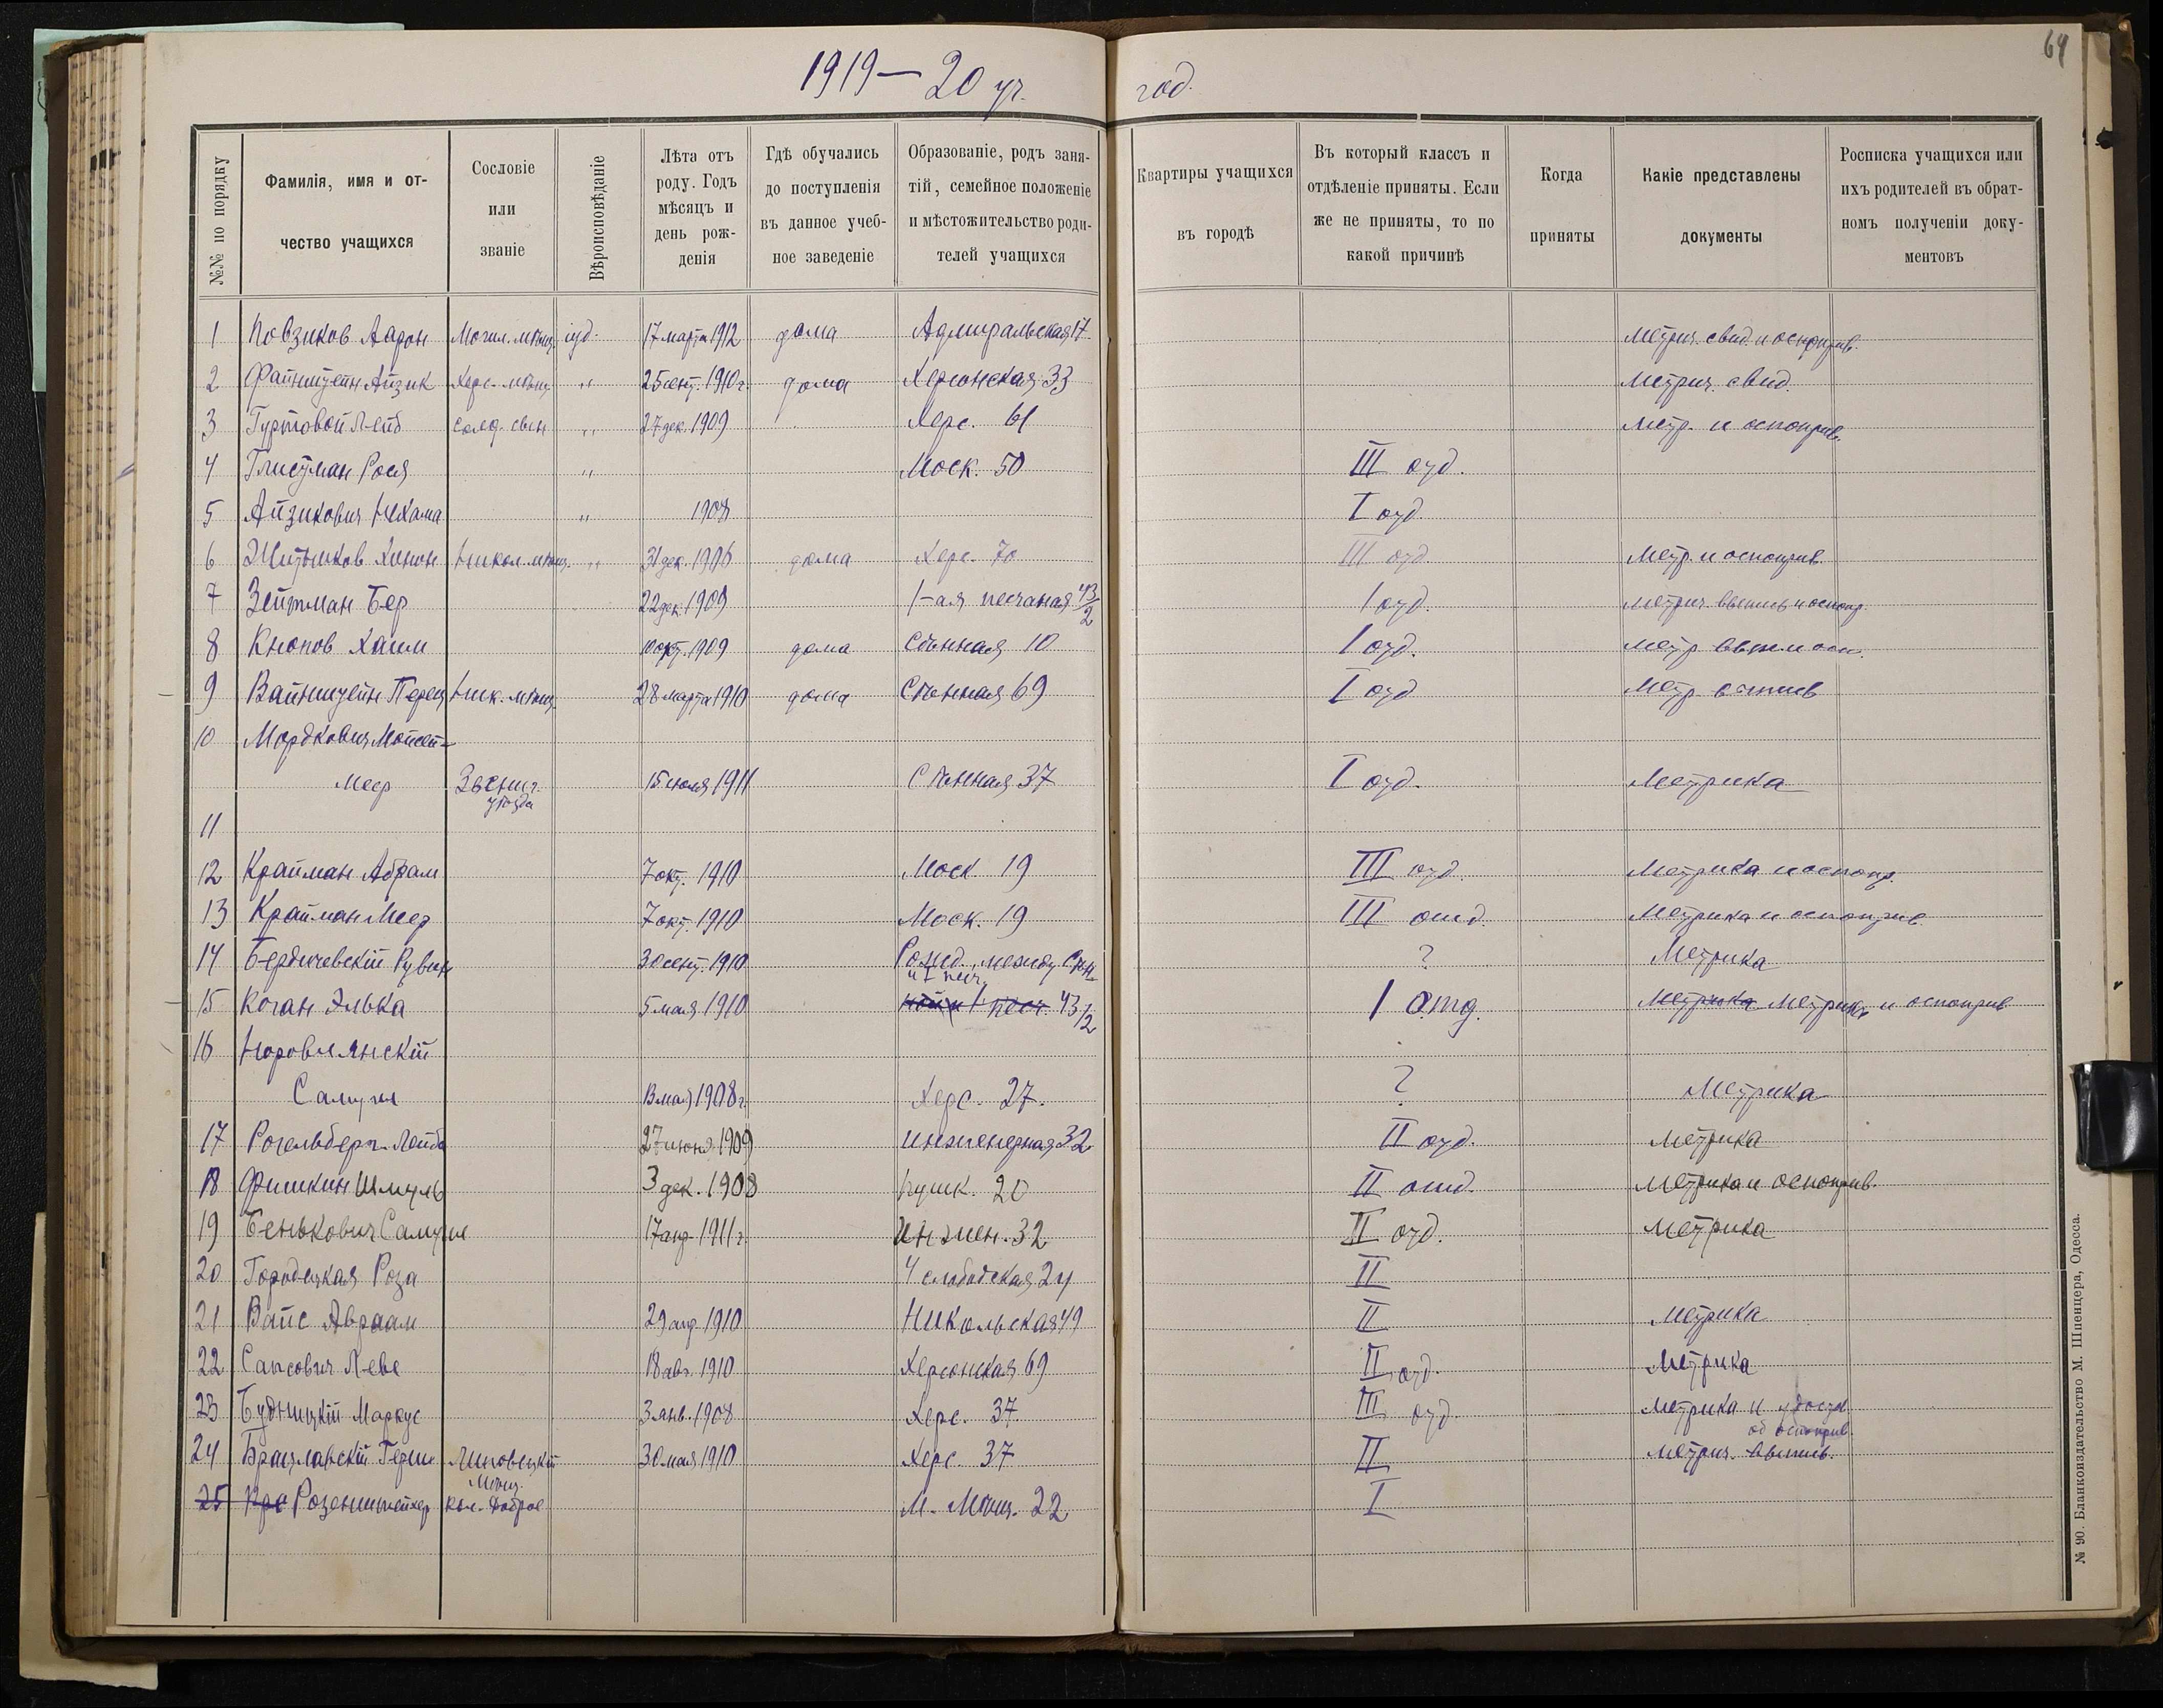 64
1919–20 уч. год.
№№ по порядку
Фамилія, имя и от-
чество учащихся
Сословіе
или
званіе
Вѣроисповѣданіе
Лѣта отъ
роду. Годъ
мѣсяцъ и
день рож-
денія
Гдѣ обучались
до поступленія
въ данное учеб-
ное заведеніе
Образованіе, родъ заня-
тій, семейное положеніе
и мѣстожительство роди-
телей учащихся
Квартиры учащихся
въ городѣ
Въ который классъ и
отдѣленіе приняты. Если
же не приняты, то по
какой причинѣ
Когда
приняты
Какіе представлены
документы
Росписка учащихся или
ихъ родителей въ обрат-
номъ полученіи доку-
ментовъ
1 Повзиков Аарон Могил. мѣщ. іуд. 17 марта 1912 дома Адмиральская 17 Метрич. свид. и оспоприв.
2 Файнштейн Айзик Херс. мѣщ. " 25 сент. 1910 г. дома Херсонская 33 Метрич. свид.
3 Гуртовой Лейб солд. сын " 27 дек. 1909 Херс. 61 Метр. и оспоприв.
4 Глистман Рося " Моск. 50 III отд.
5 Айзикович Нехама " 1908 I отд.
6 Житников Ханон Никол. мѣщ. " 31 дек. 1906 дома Херс. 70 III отд. Метр. и оспоприв.
7 Зейтман Бер 22 дек. 1909 1-ая песчаная 43/2 I отд. Метрич. выпись и оспопр.
8 Кнопов Хаим 10 окт. 1909 дома Сѣнная 10 I отд. Метр. вып. и осп.
9 Вайнштейн Перец Ник. мѣщ. 28 марта 1910 дома Сѣнная 69 I отд. Метр.
10 Мордкович Мойсей-
Меер Звениг. 15 июля 1911 Сѣнная 37 I отд. Метрика
уѣзда
11
12 Крайман Абрам 7 окт. 1910 Моск. 19 III отд. Метрика и оспопр.
13 Крайман Меер 7 окт. 1910 Моск. 19 III отд. Метрика и оспоприв.
14 Бердичевскій Рувин 30 сент. 1910 Рожд. между Сѣн- ? Метрика
и I песч.
15 Коган Элька 5 мая 1910 ной и 1 песч. 43/2 I отд. Метрика Метрика и оспоприв
16 Норовлянскій
Самуил 13 мая 1908 г. Херс. 27. ? Метрика
17 Рогельберг Лейба 27 июня 1909 Инженерная 32 II отд. Метрика
18 Фишкин Шмуль 3 дек. 1908 Пушк. 20 II отд. Метрика и оспоприв.
19 Бенькович Самуил 17 апр. 1911 г. Инжен. 32 II отд. Метрика
20 Городецкая Роза 4 слободская 24 II
21 Вайс Авраам 29 апр. 1910 Никольская 49 II Метрика
22 Сапсович Леве 18 авг. 1910 Херсонская 69 II отд. Метрика
23 Будницкій Маркус 3 янв. 1908 Херс. 37 III отд. Метрика и удост.
об оспоприв.
24 Брацлавскій Герш Липовецкій 30 мая 1910 Херс. 37 II Метрич. выпись.
Мѣщ.
25 Розенштейхер Кол. Доброе М. Мѣщ. 22 I
№ 90. Бланкоиздательство М. Шпенцера, Одесса.